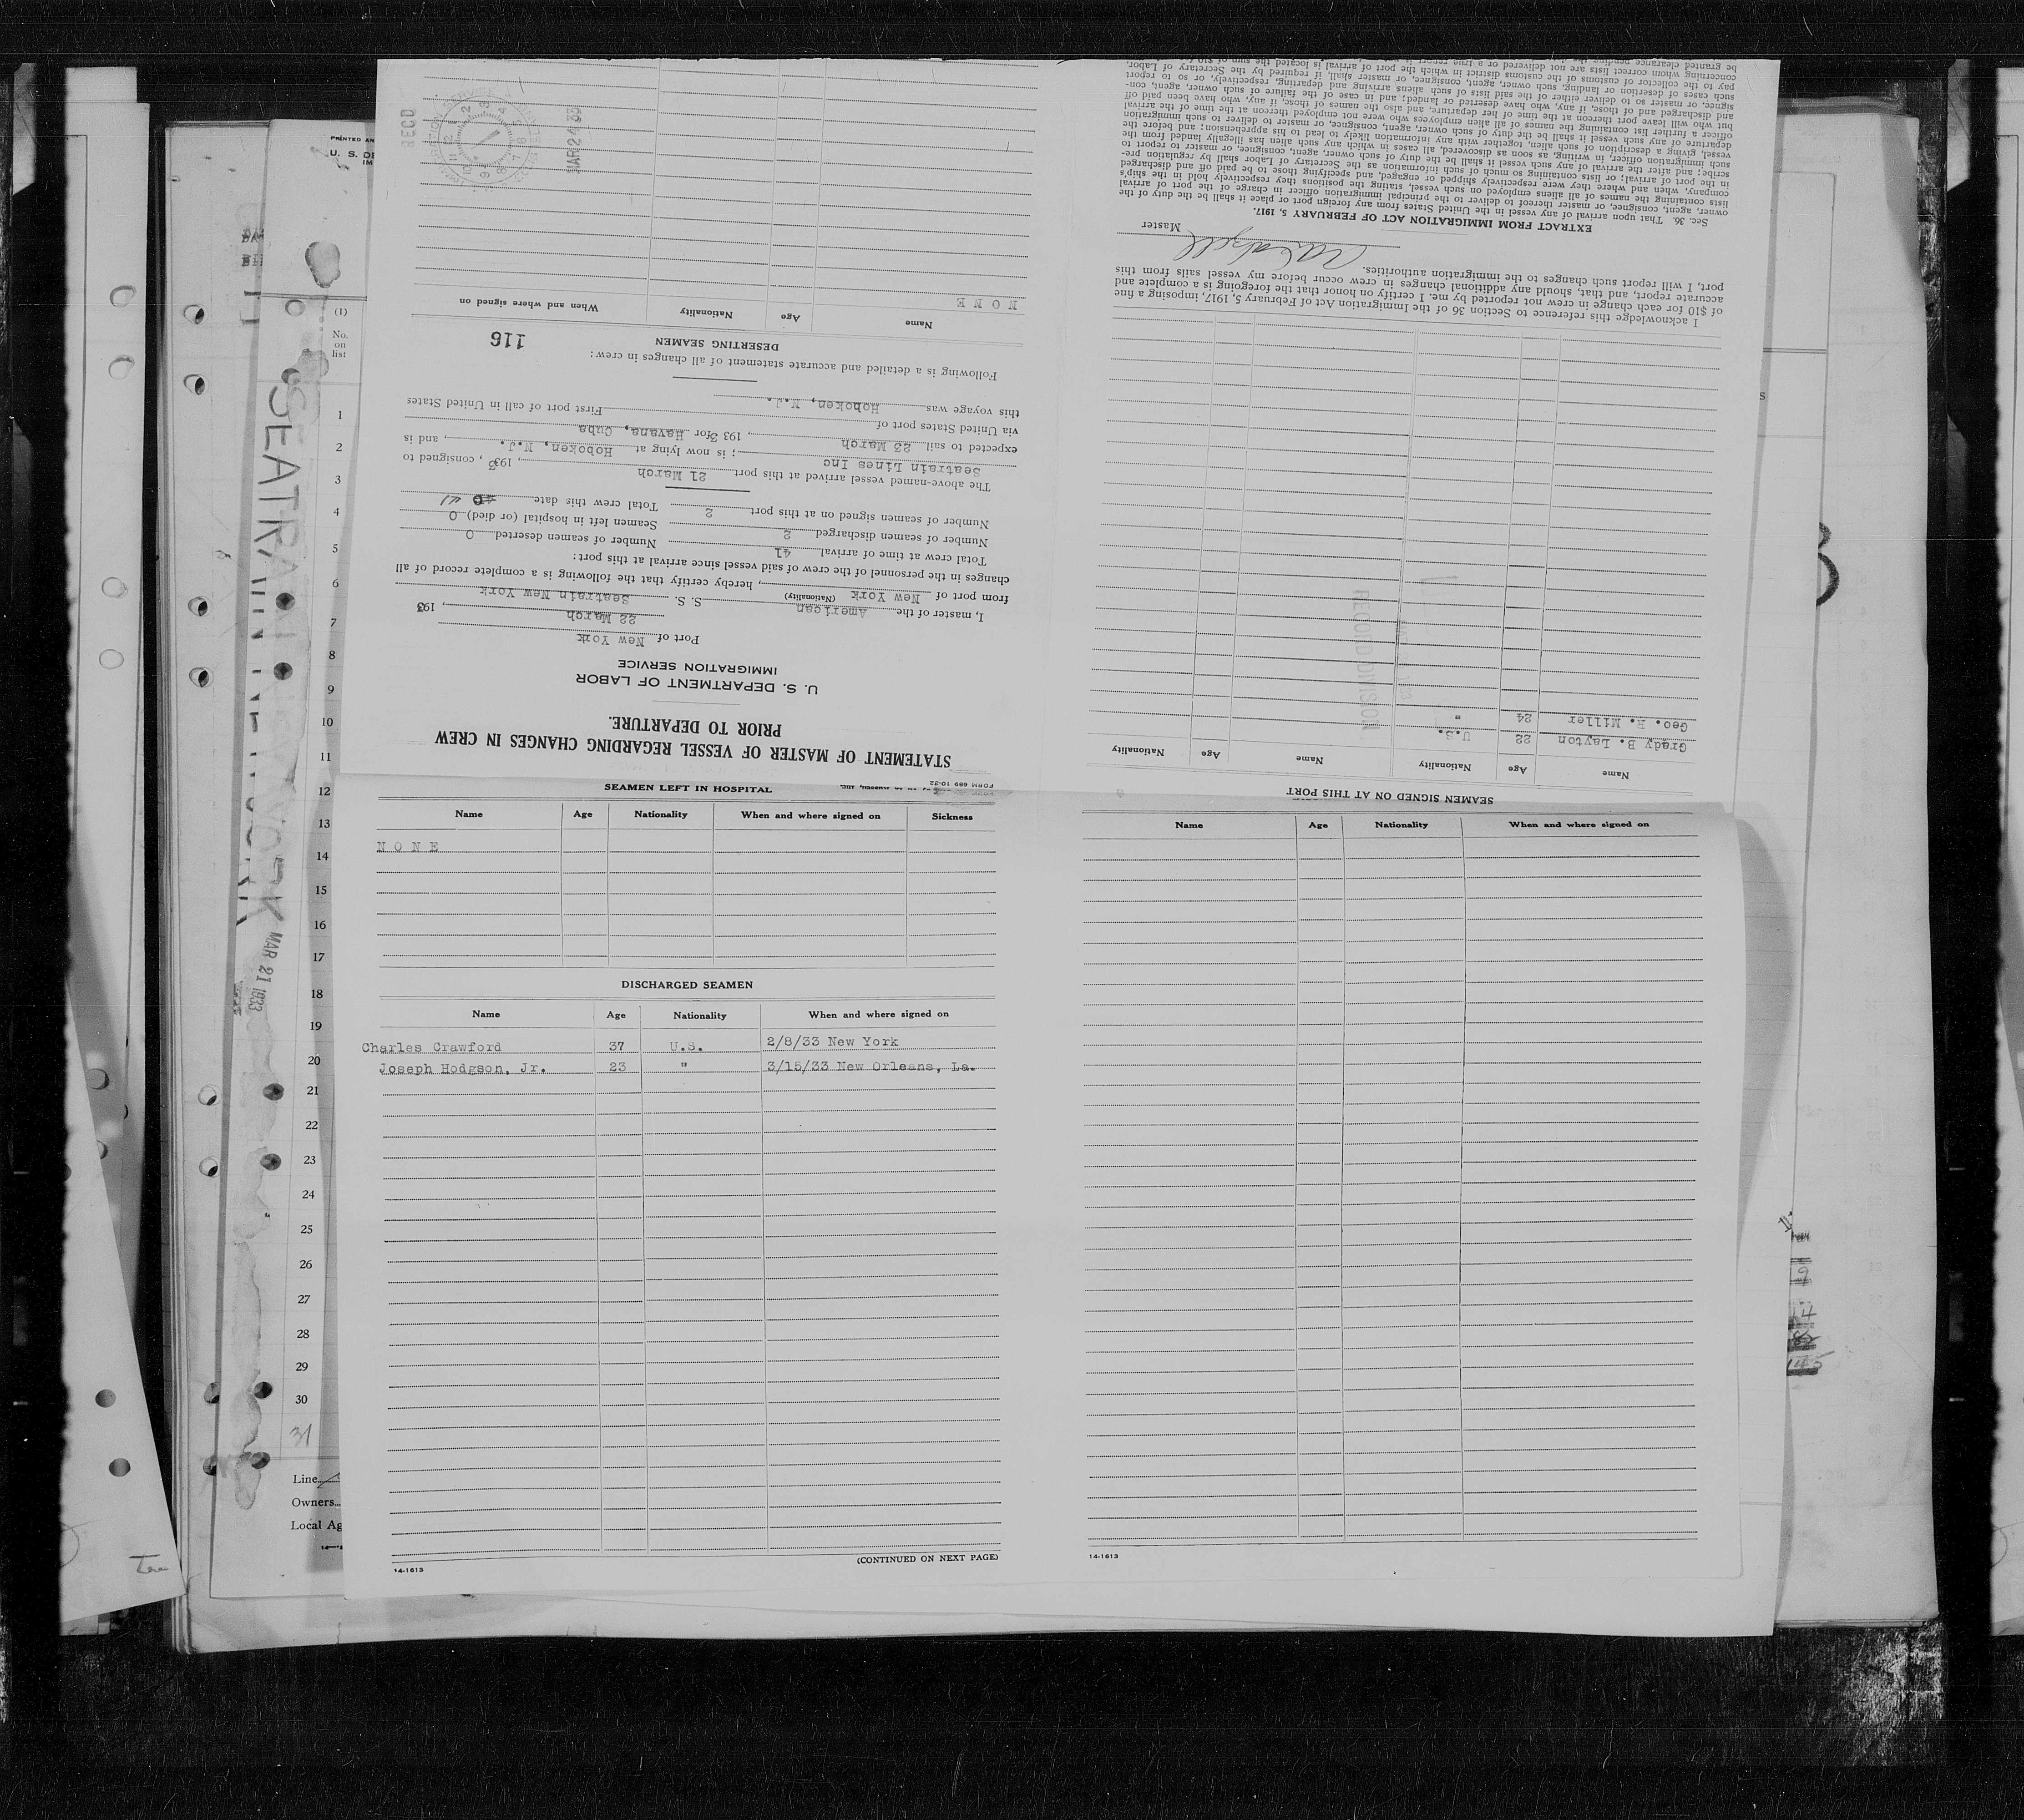 STATEMENT OF MASTER OF VESSEL REGARDING CHANGES IN CREW
PRIOR TO DEPARTURE.
U. S. DEPARTMENT OF LABOR
IMMIGRATION SERVICE
Port of New York
22 March, 193 3
I, master of the American S. S. Seatrain New York
(Nationality)
from port of New York, hereby certify that the following is a complete record of all
changes in the personnel of the crew of said vessel since arrival at this port:
Total crew at time of arrival 41 Number of seamen deserted 0
Number of seamen discharged 2 Seamen left in hospital (or died) 0
Number of seamen signed on at this port 2 Total crew this date 41
The above-named vessel arrived at this port 21 March, 193 3, consigned to
Seatrain Lines Inc; is now lying at Hoboken, N.J., and is
expected to sail 23 March, 193 3 for Havana, Cuba
via United States port of First port of call in United States
this voyage was Hoboken, N.J.
Following is a detailed and accurate statement of all changes in crew:
DESERTING SEAMEN 116
Name Age Nationality When and where signed on
N O N E
MAR 24 33
REC'D
SEAMEN LEFT IN HOSPITAL
Name Age Nationality When and where signed on Sickness
N O N E
DISCHARGED SEAMEN
Name Age Nationality When and where signed on
Charles Crawford 37 U.S. 2/8/33 New York
Joseph Hodgson, Jr. 23 " 3/15/33 New Orleans, La.
(CONTINUED ON NEXT PAGE)
14-1613
Name Age Nationality When and where signed on
14-1613
SEAMEN SIGNED ON AT THIS PORT
Name Age Nationality Name Age Nationality
Grady B. Layton 22 U.S.
Geo. R. Miller 24 "
RECORD DIVISION
I acknowledge this reference to Section 36 of the Immigration Act of February 5, 1917, imposing a fine
of $10 for each change in crew not reported by me. I certify on honor that the foregoing is a complete and
accurate report, and that, should any additional changes in crew occur before my vessel sails from this
port, I will report such changes to the immigration authorities.
Master
EXTRACT FROM IMMIGRATION ACT OF FEBRUARY 5, 1917.
Sec. 36. That upon arrival of any vessel in the United States from any foreign port or place it shall be the duty of the
owner, agent, consignee, or master thereof to deliver to the principal immigration officer in charge of the port of arrival
lists containing the names of all aliens employed on such vessel, stating the positions they respectively hold in the ship's
company, when and where they were respectively shipped or engaged, and specifying those to be paid off and discharged
in the port of arrival; or lists containing so much of such information as the Secretary of Labor shall by regulation pre-
scribe; and after the arrival of any such vessel it shall be the duty of such owner, agent, consignee, or master to report to
such immigration officer, in writing, as soon as discovered, all cases in which any such alien has illegally landed from the
vessel, giving a description of such alien, together with any information likely to lead to his apprehension; and before the
departure of any such vessel it shall be the duty of such owner, agent, consignee, or master to deliver to such immigration
officer a further list containing the names of all alien employees who were not employed thereon at the time of the arrival
but who will leave port thereon at the time of her departure, and also the names of those, if any, who have been paid off
and discharged and of those, if any, who have deserted or landed; and in case of the failure of such owner, agent, con-
signee, or master so to deliver either of the said lists of such aliens arriving and departing, respectively, or so to report
such cases of desertion or landing, such owner, agent, consignee, or master shall, if required by the Secretary of Labor,
pay to the collector of customs of the customs district in which the port of arrival is located the sum of $10
concerning whom correct lists are not delivered or a true report is
be granted clearance pending the
FORM 689 10-32
PRINTED
U. S.
(1)
No.
on
list
1
2
3
4
5
6
7
8
9
10
11
12
13
14
15
16
17
18
19
20
21
22
23
24
25
26
27
28
29
30
31
Line
Owners
Local
SEATRAIN NEW YORK
MAR 21 1933